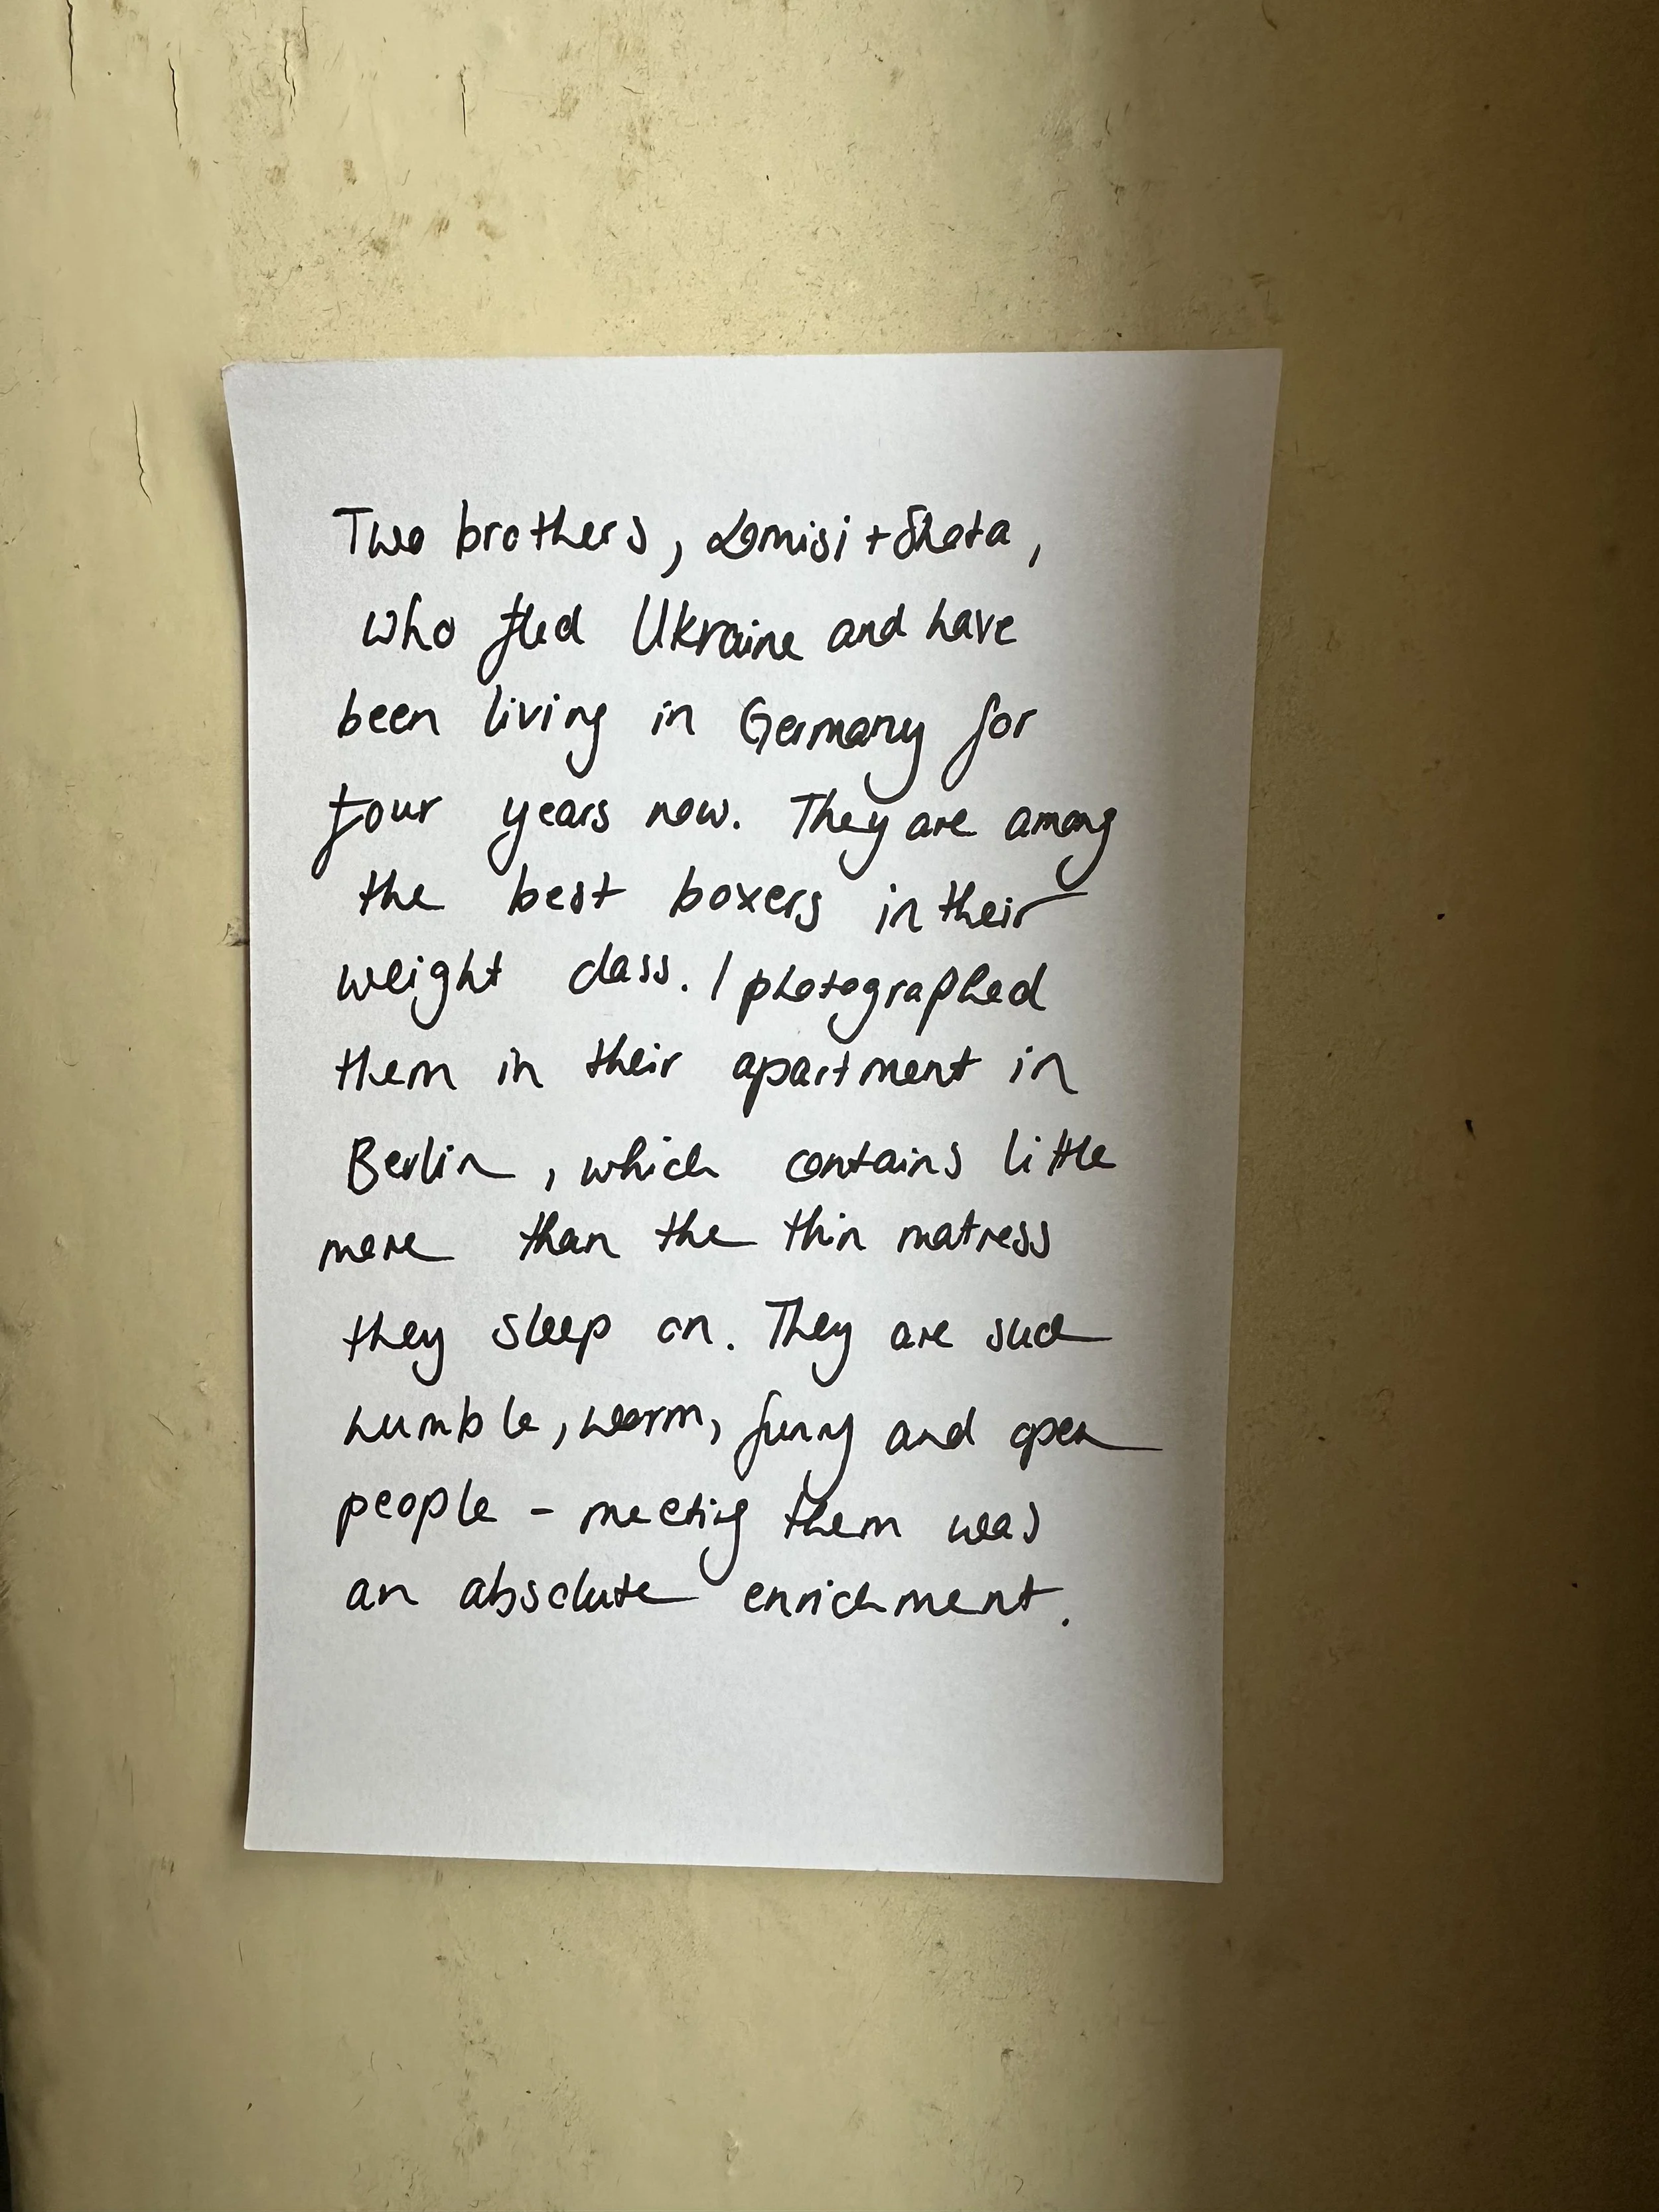 Two brothers, Lomisi + Shota,
who fled Ukraine and have
been living in Germany for
four years now. They are among
the best boxers in their
weight class. I photographed
them in their apartment in
Berlin, which contains little
more than the thin matress
they sleep on. They are such
humble, warm, funny and open
people - meeting them was
an absolute enrichment.